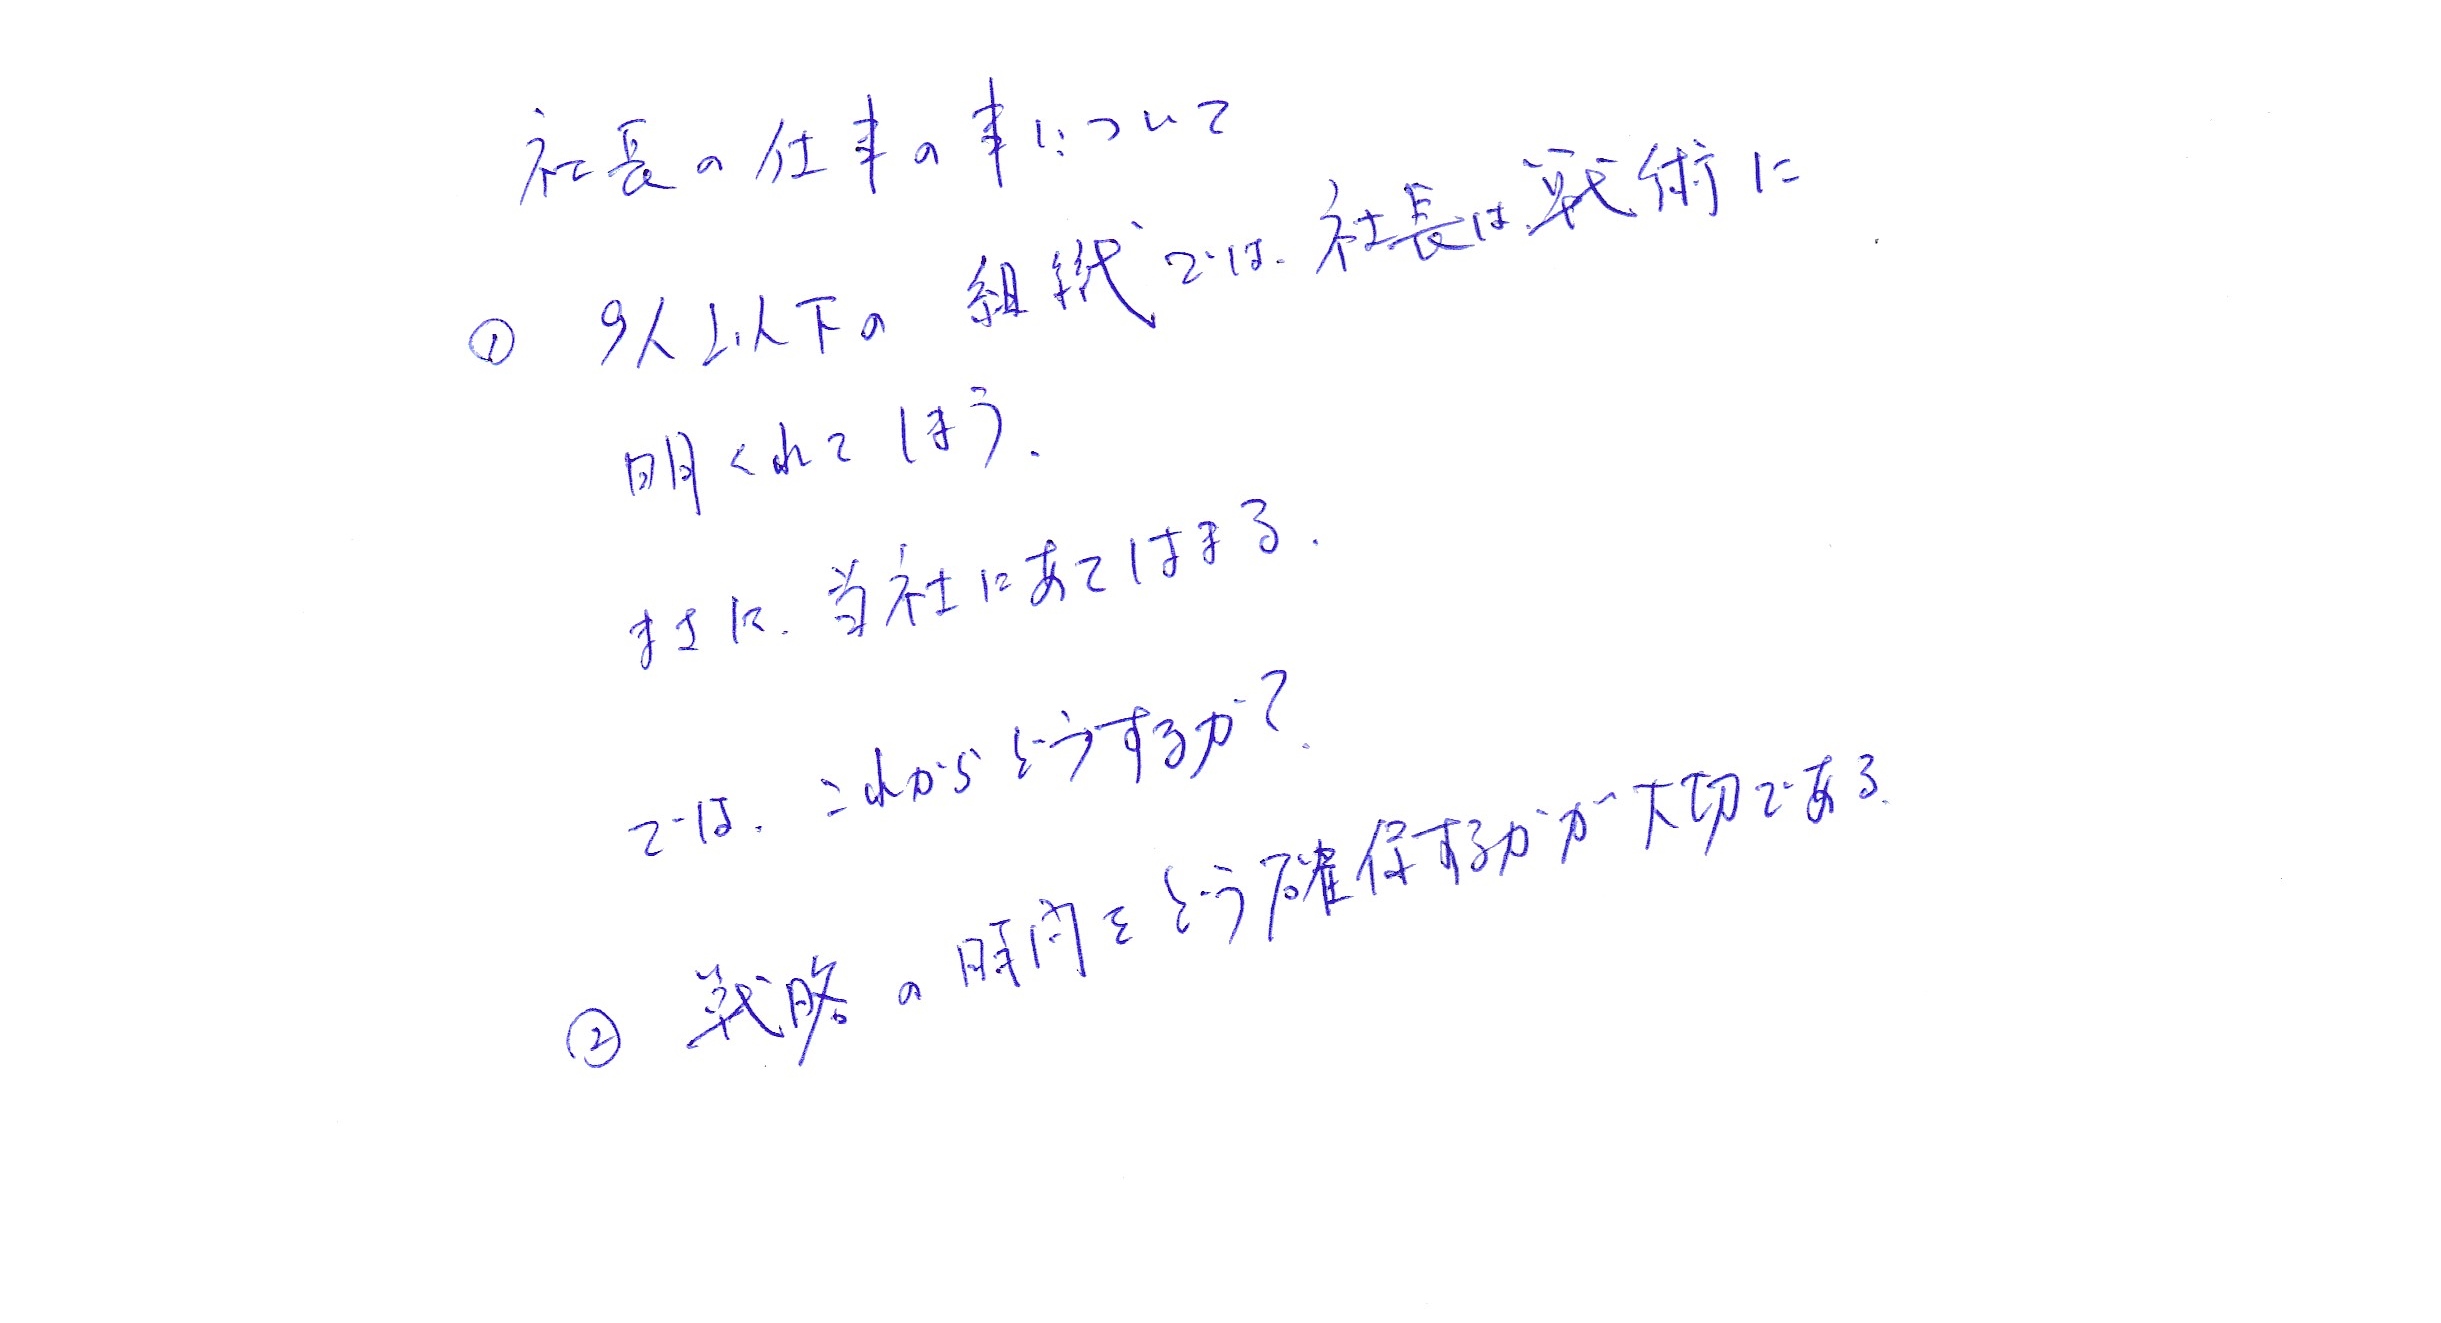 社長の仕事の事について
① 9人以下の組織では、社長は戦術に
明くれてしまう.
まさに、当社にあてはまる.
では、これからどうするか?
② 戦略の時間をどう確保するかが大切である.